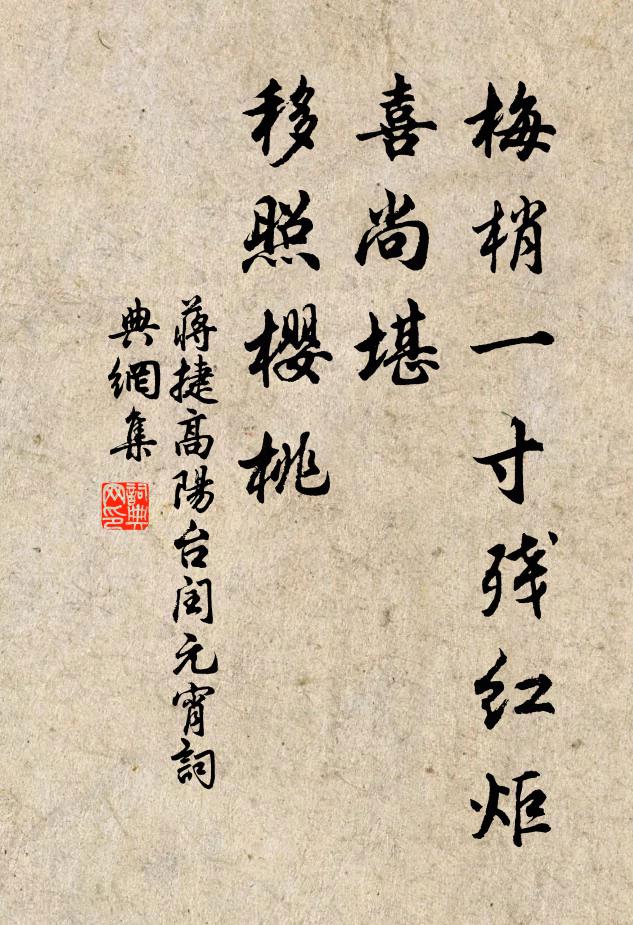 梅梢一寸残红炬
喜尚堪
移照樱桃
蒋捷高陽台闰元宵詞
典網集
詞典網印